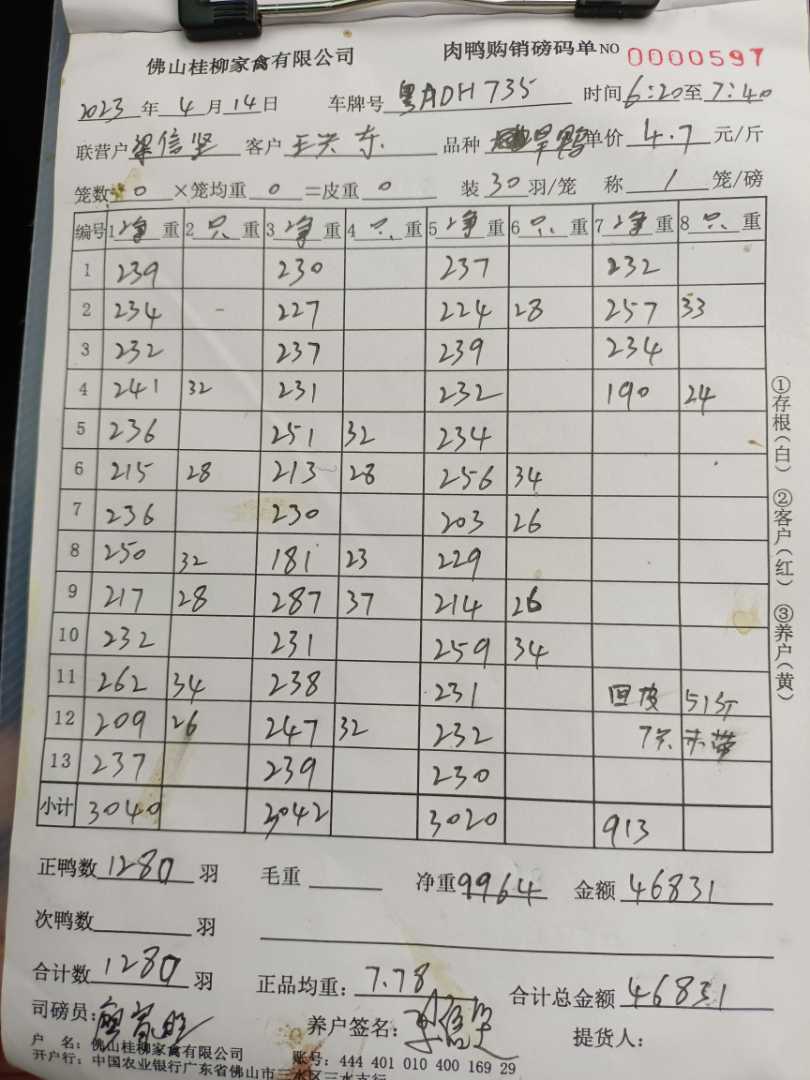 佛山桂柳家禽有限公司 肉鸭购销磅码单 NO 0000597
2023年4月14日 车牌号 粤ADH735 时间6:20至7:40
联营户梁信坚 客户王兴东 品种 旱鸭 单价4.7元/斤
笼数 0 ×笼均重 0 =皮重 0 装30羽/笼 称 1 笼/磅
编号 1净重 2只重 3净重 4只重 5净重 6只重 7净重 8只重
1 239 230 237 232
2 234 - 227 224 28 257 33
3 232 237 239 234
4 241 32 231 232 190 24
5 236 251 32 234
6 215 28 213 28 256 34
7 236 230 203 26
8 250 32 181 23 229
9 217 28 287 37 214 26
10 232 231 259 34
11 262 34 238 231 回皮 51斤
12 209 26 247 32 232 7只未带
13 237 239 230
小计 3040 3042 3020 913
①存根(白) ②客户(红) ③养户(黄)
正鸭数1280羽 毛重 净重9964 金额46831
次鸭数 羽
合计数1280羽 正品均重:7.78 合计总金额46831
司磅员: 养户签名: 提货人:
户 名:佛山桂柳家禽有限公司 账号:444 401 010 400 169 29
开户行:中国农业银行广东省佛山市三水区三水支行